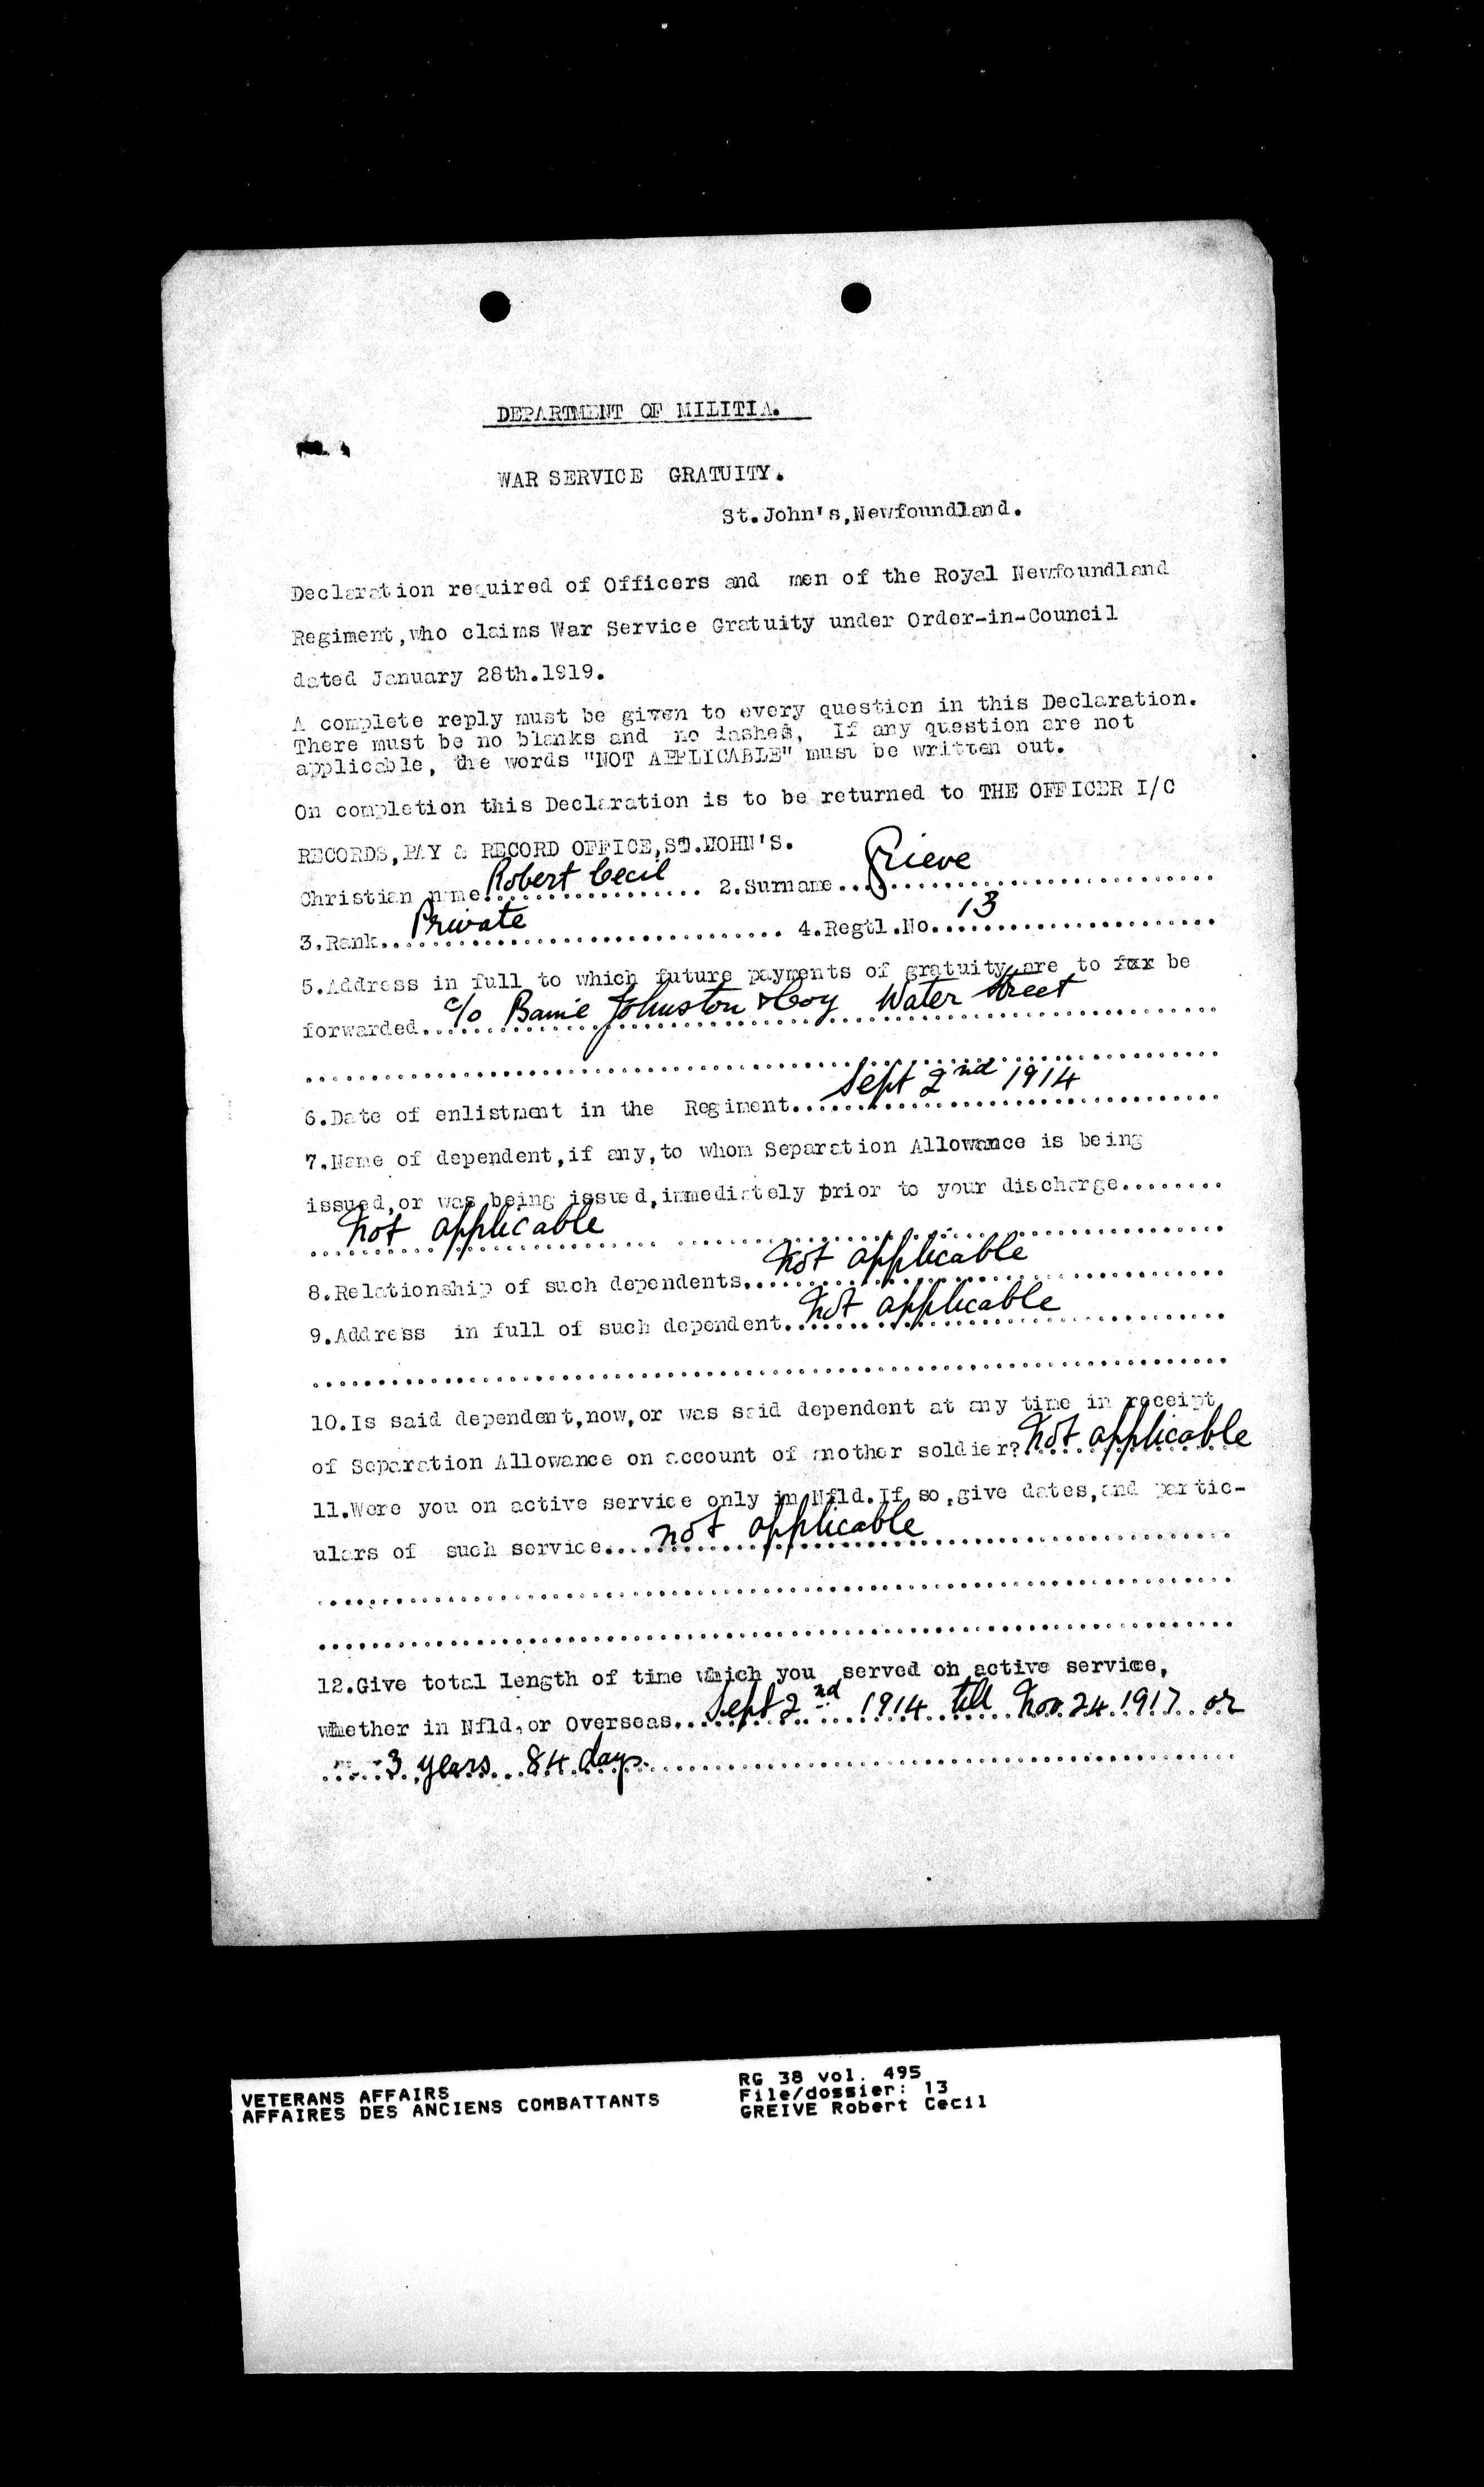 DEPARTMENT OF MILITIA.
WAR SERVICE GRATUITY.
St.John's,Newfoundland.
Declaration required of Officers and men of the Royal Newfoundland
Regiment,who claims War Service Gratuity under Order-in-Council
dated January 28th.1919.
A complete reply must be given to every question in this Declaration.
There must be no blanks and no dashes, If any question are not
applicable, the words "NOT APPLICABLE" must be written out.
On completion this Declaration is to be returned to THE OFFICER I/C
RECORDS,PAY & RECORD OFFICE,ST.JOHN'S.
Christian name Robert Cecil 2.Surname Grieve
3.Rank Private 4.Regtl.No. 13
5.Address in full to which future payments of gratuity are to for be
forwarded. c/o Johnston & Coy Water Street
6.Date of enlistment in the Regiment. Sept 2nd 1914
7.Name of dependent,if any,to whom Separation Allowance is being
issued,or was being issued,immediately prior to your discharge........
Not applicable
8.Relationship of such dependents. Not applicable
9.Address in full of such dependent. Not applicable
10.Is said dependent,now,or was said dependent at any time in receipt
of Separation Allowance on account of another soldier? Not applicable
11.Were you on active service only in Nfld.If so,give dates,and partic-
ulars of such service. not applicable
12.Give total length of time which you served on active service,
whether in Nfld.or Overseas. Sept 2nd 1914 till Nov 24 1917 or
3 years 84 days.
VETERANS AFFAIRS
AFFAIRES DES ANCIENS COMBATTANTS
RG 38 vol. 495
File/dossier: 13
GREIVE Robert Cecil